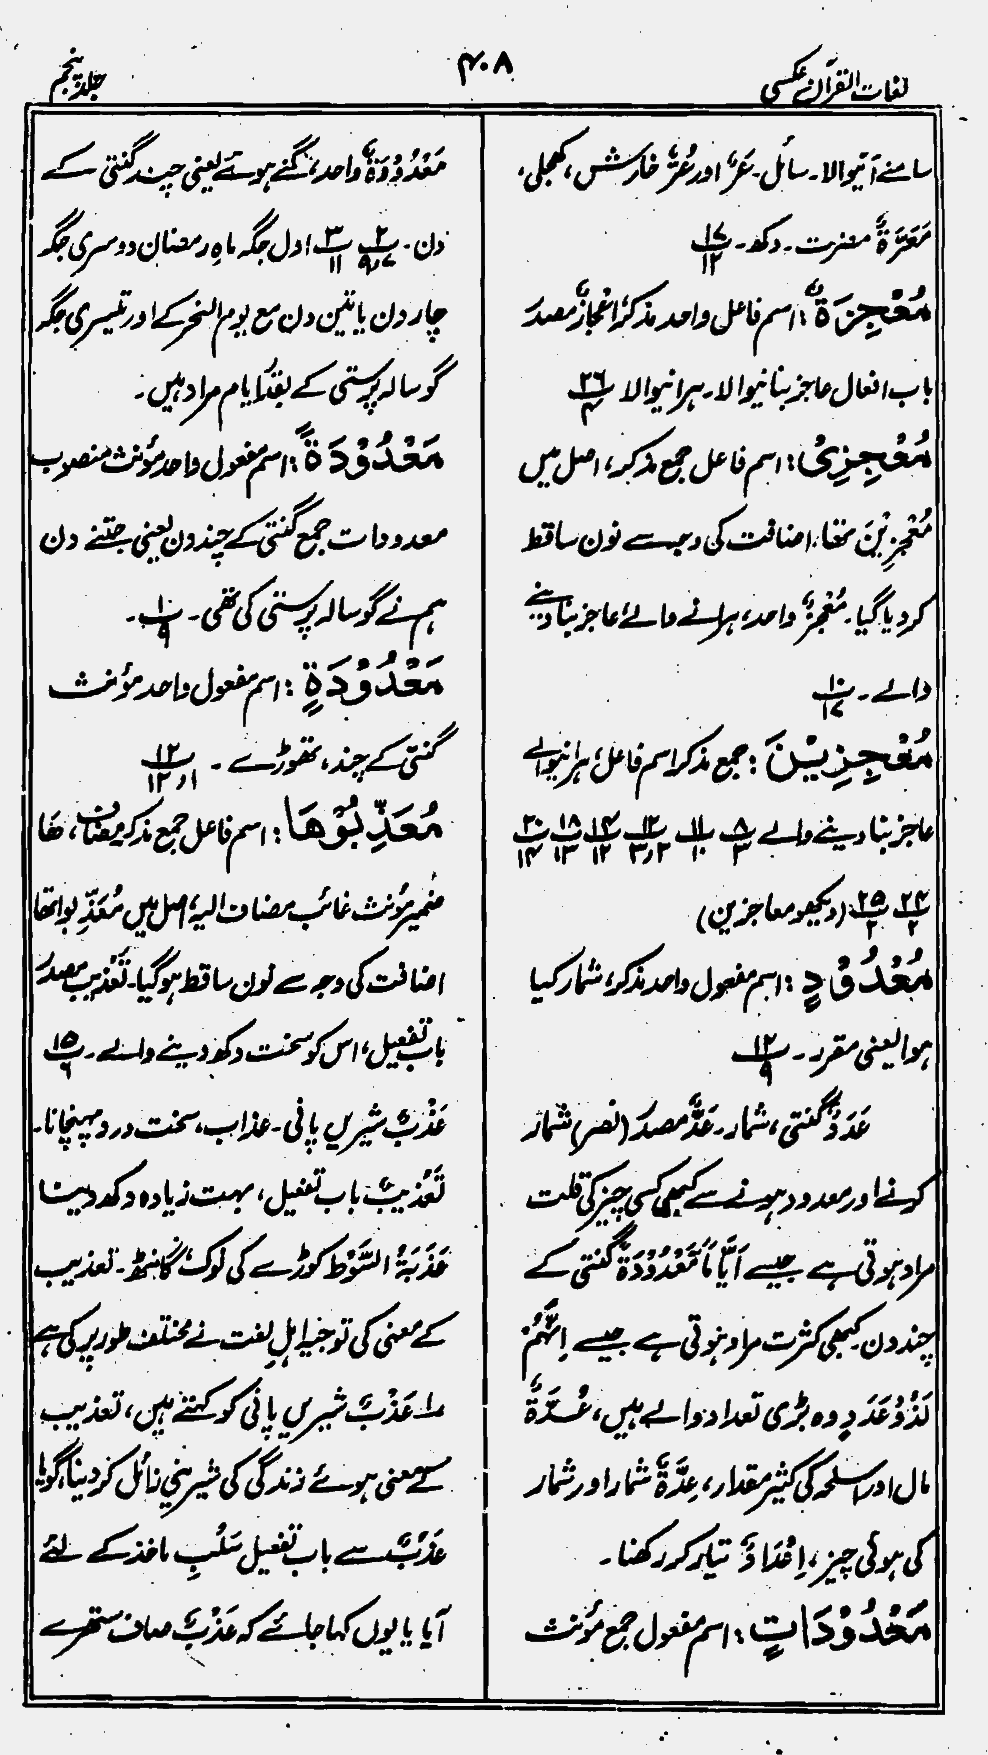 لغات القرآن عکسی
۴۰۸
جلد پنجم
سامنے آنیوالا۔ سائل۔ عَرٌّ اور عُرٌّ خارش، کھجلی،
مَعَرَّةٌ مضرت۔ دکھ۔ ۱۷/۱۲
مُعْجِزَةٌ: اسم فاعل واحد مذکر اِعْجَازٌ مصدر
باب افعال عاجز بنانیوالا۔ ہرانیوالا ۲۶/۴
مُعْجِزِیْ: اسم فاعل جمع مذکر، اصل میں
مُعْجِزِیْنَ تھا، اضافت کی وجہ سے نون ساقط
کر دیا گیا۔ مُعْجِزٌ واحد، ہرانے والے عاجز بنا دینے
والے۔ ۱۰/۱۷
مُعْجِزِیْنَ: جمع مذکر اسم فاعل، ہرانیوالے
عاجز بنا دینے والے ۸/۳ ۱۱/۱۰ ۱۲/۳٫۲ ۱۴/۱۲ ۱۸/۱۳ ۲۰/۱۴
۲۴/۲ ۲۵/۲ (دیکھو معاجزین)
مَعْدُوْدٍ: اسم مفعول واحد مذکر، شمار کیا
ہوا یعنی مقرر۔ ۱۲/۹
عَدَدٌ گنتی، شمار۔ عَدٌّ مصدر (نصر) شمار
کرنے اور معدود ہونے سے کبھی کسی چیز کی قلت
مراد ہوتی ہے جیسے اَیَّامًا مَّعْدُوْدَةً گنتی کے
چند دن۔ کبھی کثرت مراد ہوتی ہے جیسے اِنَّهُمْ
لَذُوْ عَدَدٍ وہ بڑی تعداد والے ہیں، عُدَّةٌ
مال اور اسلحہ کی کثیر مقدار، عِدَّةٌ شمار اور شمار
کی ہوئی چیز، اِعْدَادٌ تیار کر رکھنا۔
مَعْدُوْدَاتٍ: اسم مفعول جمع مؤنث
مَعْدُوْدَةٌ واحد، گنے ہوئے یعنی چند گنتی کے
دن۔ ۲/۹٫۷ ۳/۱۱ اول جگہ ماہ رمضان دوسری جگہ
چار دن یا تین دن مع یوم النحر کے اور تیسری جگہ
گوسالہ پرستی کے بقدر ایام مراد ہیں۔
مَعْدُوْدَةً: اسم مفعول واحد مؤنث منصوب
معدودات جمع گنتی کے چند دن یعنی جتنے دن
ہم نے گوسالہ پرستی کی تھی۔ ۱/۹۔
مَعْدُوْدَةٍ: اسم مفعول واحد مؤنث
گنتی کے چند، تھوڑے۔ ۱۲/۱۲٫۱
مُعَذِّبُوْهَا: اسم فاعل جمع مذکر مضاف، ھا
ضمیر مؤنث غائب مضاف الیہ، اصل میں مُعَذِّبون تھا
اضافت کی وجہ سے نون ساقط ہو گیا۔ تَعْذِیْب مصدر
باب تفعیل، اس کو سخت دکھ دینے والے۔ ۱۵/۶
عَذْبٌ شیریں پانی۔ عذاب، سخت درد پہنچانا۔
تَعْذِیْبٌ باب تفعیل، بہت زیادہ دکھ دینا
عَذَبَةُ السَّوْط کوڑے کی نوک، گانٹھ۔ تعذیب
کے معنی کی توجیہ اہل لغت نے مختلف طور پر کی ہے
۱۔ عَذْبٌ شیریں پانی کو کہتے ہیں، تعذیب
کے معنی ہوئے زندگی کی شیرینی زائل کر دینا، گویا
عَذْبٌ سے باب تفعیل سَلْبِ ماخذ کے لئے
آیا یا یوں کہا جائے کہ عَذْبٌ صاف ستھرے